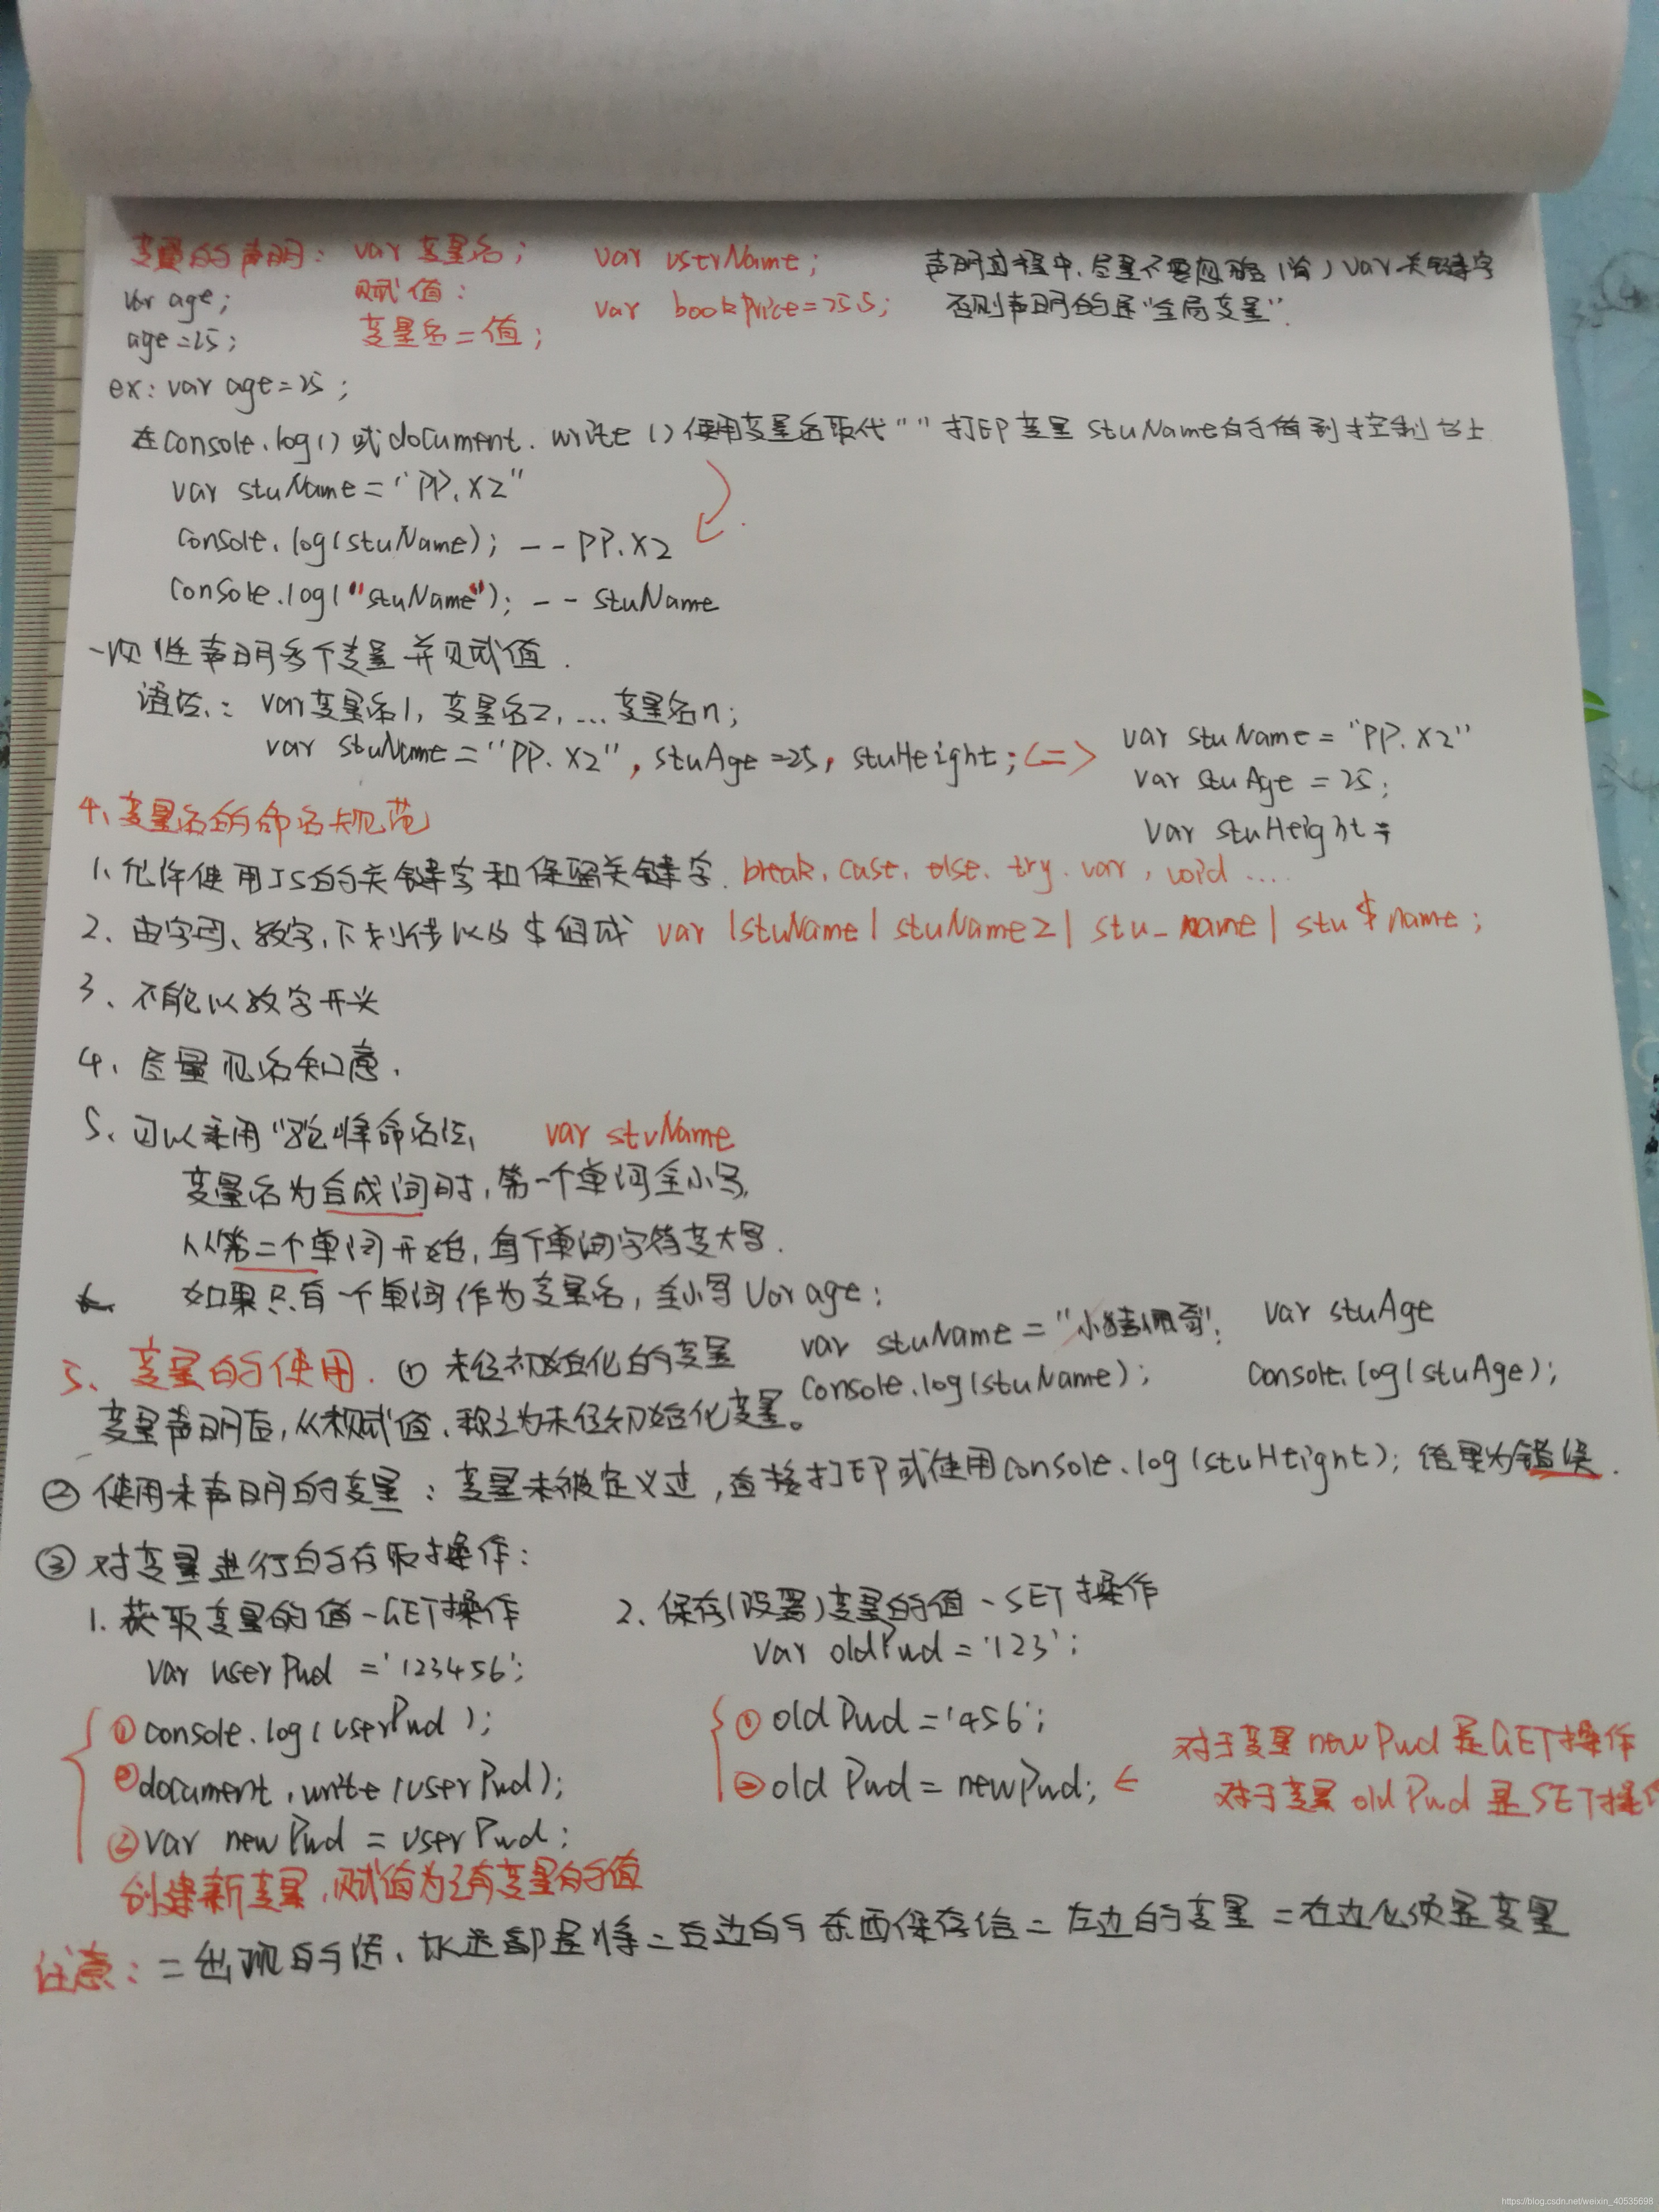 变量的声明： var 变量名； var userName；
声明过程中，尽量不要忽略（省）var关键字
否则声明的是"全局变量".
var age；
赋值：
var bookPrice=255；
age=25；
变量名=值；
ex：var age=25；
在console.log()或document.write()使用变量名取代"" 打印变量stuName的值到控制台上
var stuName="PP.XZ"
console.log(stuName)；--PP.XZ
console.log("stuName")；--stuName
一次性声明多个变量并赋值.
语法：var变量名1，变量名2，...变量名n；
var stuName="PP.XZ"，stuAge=25，stuHeight；<=>
var stuName="PP.XZ"
var stuAge=25；
var stuHeight；
4、变量名的命名规范
1.允许使用JS的关键字和保留关键字. break、case、else、try、var、void ....
2、由字母、数字、下划线以及$组成 var 1stuName | stuName2 | stu_name | stu$name；
3、不能以数字开头
4、尽量见名知意.
5、可以采用"驼峰命名法 var stuName
变量名为合成词时，第一个单词全小写，
从第二个单词开始，每个单词字符变大写.
如果只有一个单词作为变量名，全小写Var age；
5、变量的使用. ① 未经初始化的变量
var stuName="小猪佩奇"； var stuAge
console.log(stuName)； console.log(stuAge)；
变量声明后，从未赋值，称之为未经初始化变量。
② 使用未声明的变量：变量未被定义过，直接打印或使用console.log(stuHeight)；结果为错误.
③ 对变量进行的存取操作：
1.获取变量的值-GET操作 2.保存(设置)变量的值-SET操作
var userPwd='123456'； var oldPwd='123'；
①console.log(userPwd)； ①oldPwd='456'；
②document.write(userPwd)； ②oldPwd=newPwd；←
对于变量newPwd是GET操作
对于变量oldPwd是SET操作
var newPwd=userPwd；
创建新变量，赋值为已有变量的值
注意：=出现的话，永远都是将=右边的东西保存给=左边的变量 =左边必须是变量
https://blog.csdn.net/weixin_40535698